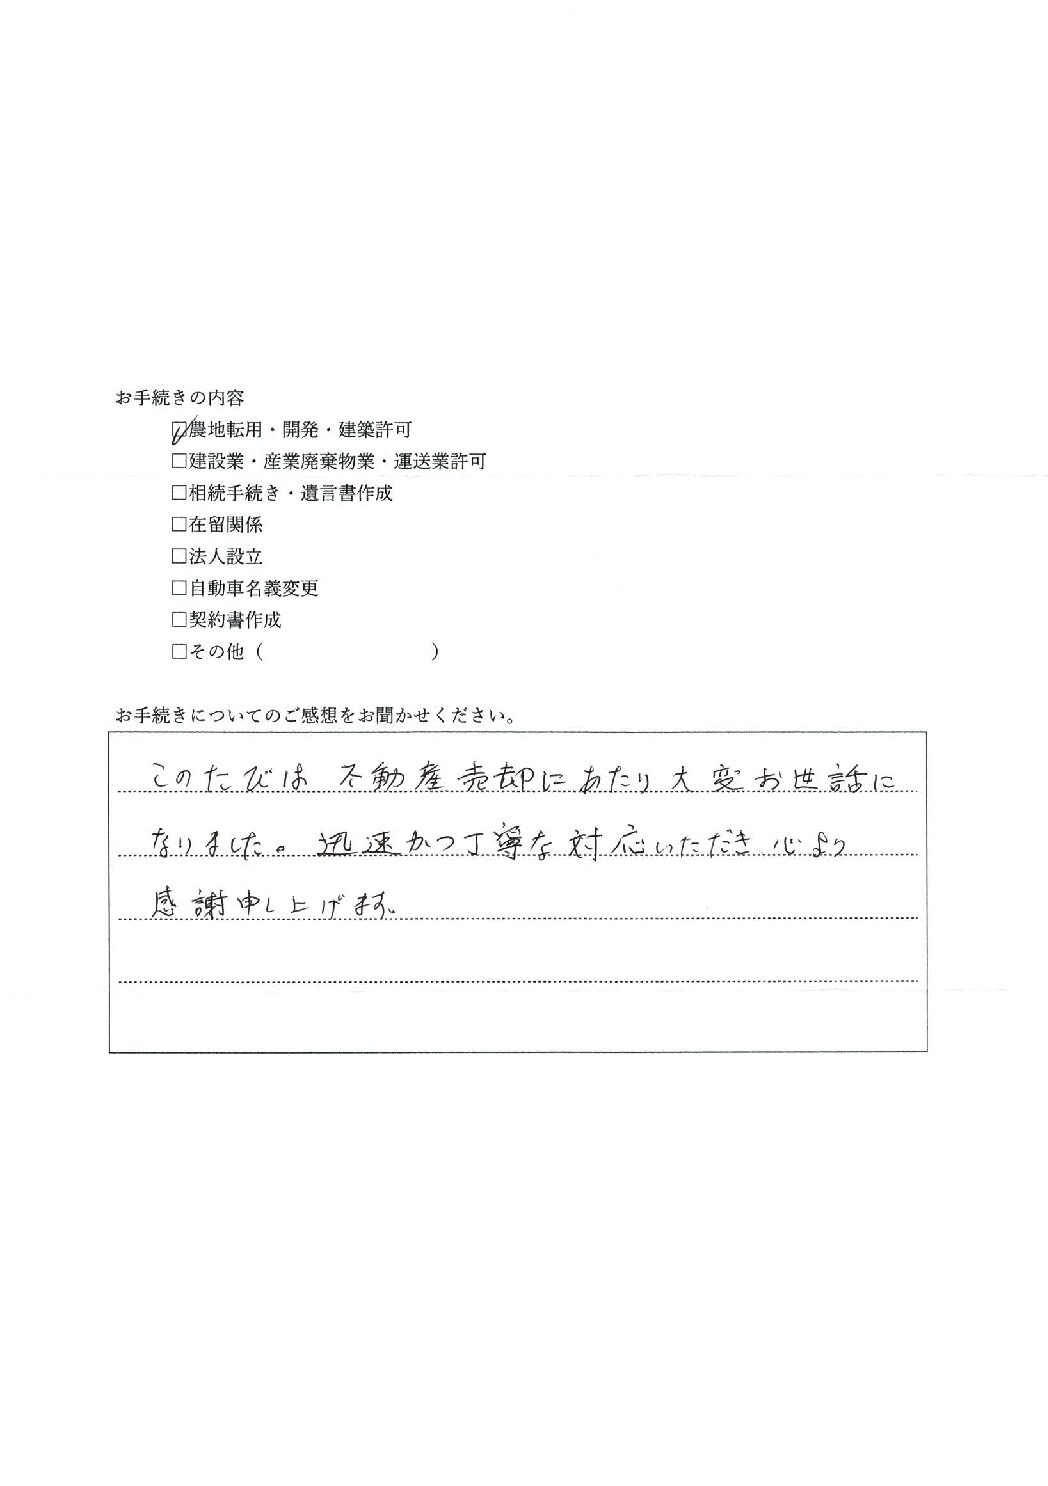 お手続きの内容
☑農地転用・開発・建築許可
□建設業・産業廃棄物業・運送業許可
□相続手続き・遺言書作成
□在留関係
□法人設立
□自動車名義変更
□契約書作成
□その他（　　　　　　　　　）
お手続きについてのご感想をお聞かせください。
このたびは 不動産売却にあたり大変お世話に
なりました。迅速かつ丁寧な対応いただき 心より
感謝申し上げます。